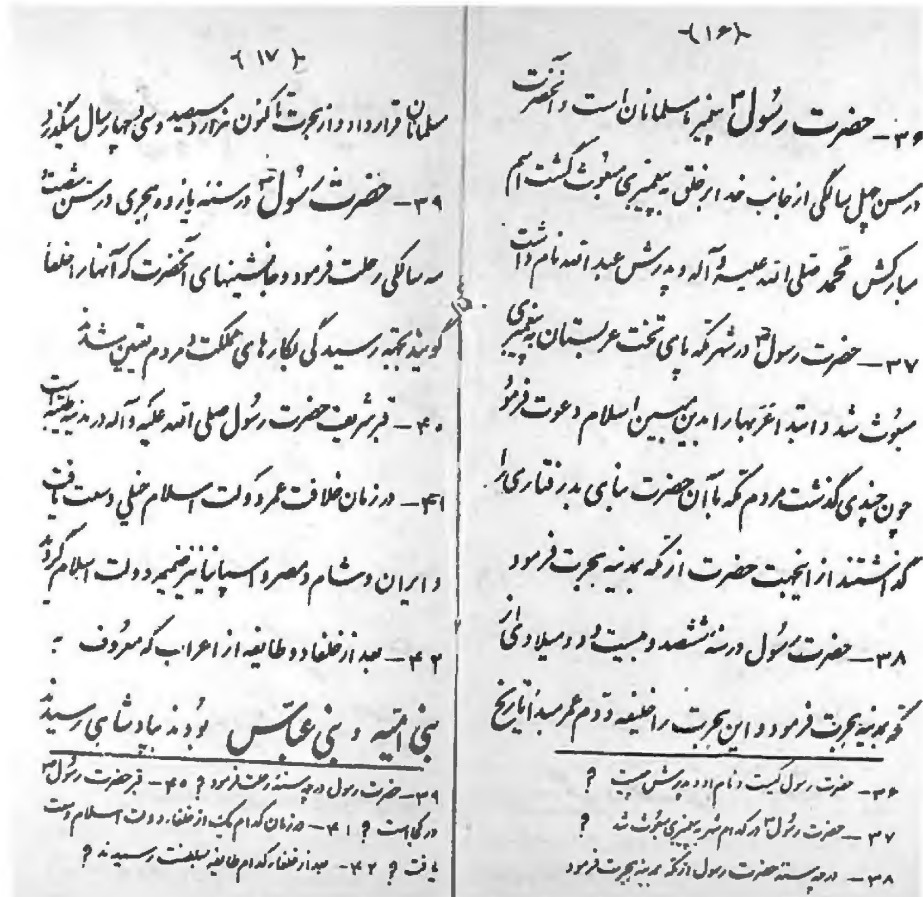 ﴿۱۶﴾
۳۶ـ حضرت رسول ص پیغمبر ما مسلمانان است و آنحضرت
در سن چهل سالگی از جانب خدا بر خلق به پیغمبری مبعوث گشت اسم
مبارکش محمد صلی الله علیه و آله و پدرش عبد الله نام داشت
۳۷ـ حضرت رسول ص در شهر مکه پای تخت عربستان به پیغمبری
مبعوث شد و ابتدا عربها را بدین مبین اسلام دعوت فرمود
چون چندی گذشت مردم مکه با آن حضرت بنای بدرفتاری را
گذاشتند از اینجهت حضرت از مکه بمدینه هجرت فرمود
۳۸ـ حضرت رسول در سنه ششصد و بیست و دو میلادی از
مکه بمدینه هجرت فرمود و این هجرت را خلیفه دوم عمر مبدأ تاریخ
۳۶ـ حضرت رسول کیست و نام او و پدرش چیست ؟
۳۷ـ حضرت رسول ص در کدام شهر به پیغمبری مبعوث شد ؟
۳۸ـ در چه سنه حضرت رسول از مکه بمدینه هجرت فرمود
﴿۱۷﴾
مسلمانان قرار داد و از هجرت تا کنون هزار و سیصد و سی و چهار سال میگذرد
۳۹ـ حضرت رسول ص در سنه یازده هجری در سن شصت و
سه سالگی رحلت فرمود و جانشینهای آنحضرت که آنها را خلفا
گویند بجهته رسیدگی بکارهای مملکت و مردم تعیین شدند
۴۰ـ قبر شریف حضرت رسول صلی الله علیه و آله در مدینه طیبه است
۴۱ـ در زمان خلافت عمر دولت اسلام خیلی وسعت یافت
و ایران و شام و مصر و اسپانیا نیز ضمیمه دولت اسلام گردید
۴۲ـ بعد از خلفا دو طایفه از اعراب که معروف به
بنی امیه و بنی عباس بودند بپادشاهی رسیدند
۳۹ـ حضرت رسول در چه سنه رحلت فرمود ؟ ۴۰ـ قبر حضرت رسول ص
در کجاست ؟ ۴۱ـ در زمان کدام یک از خلفا دولت اسلام وسعت
یافت ؟ ۴۲ـ بعد از خلفا کدام طایفه بسلطنت رسیدند ؟